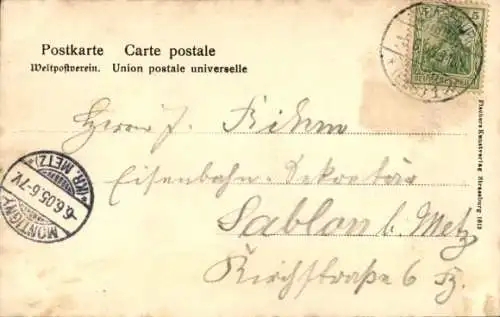 Postkarte Carte postale
Weltpostverein. Union postale universelle
Herrn J.
Eisenbahn-Sekretär
Sablon b. Metz
Kirchstraße 6
MONTIGNY
*(KR. METZ)*
6.6.05.6-7V.
5
Fischers Kunstverlag Strassburg 1813